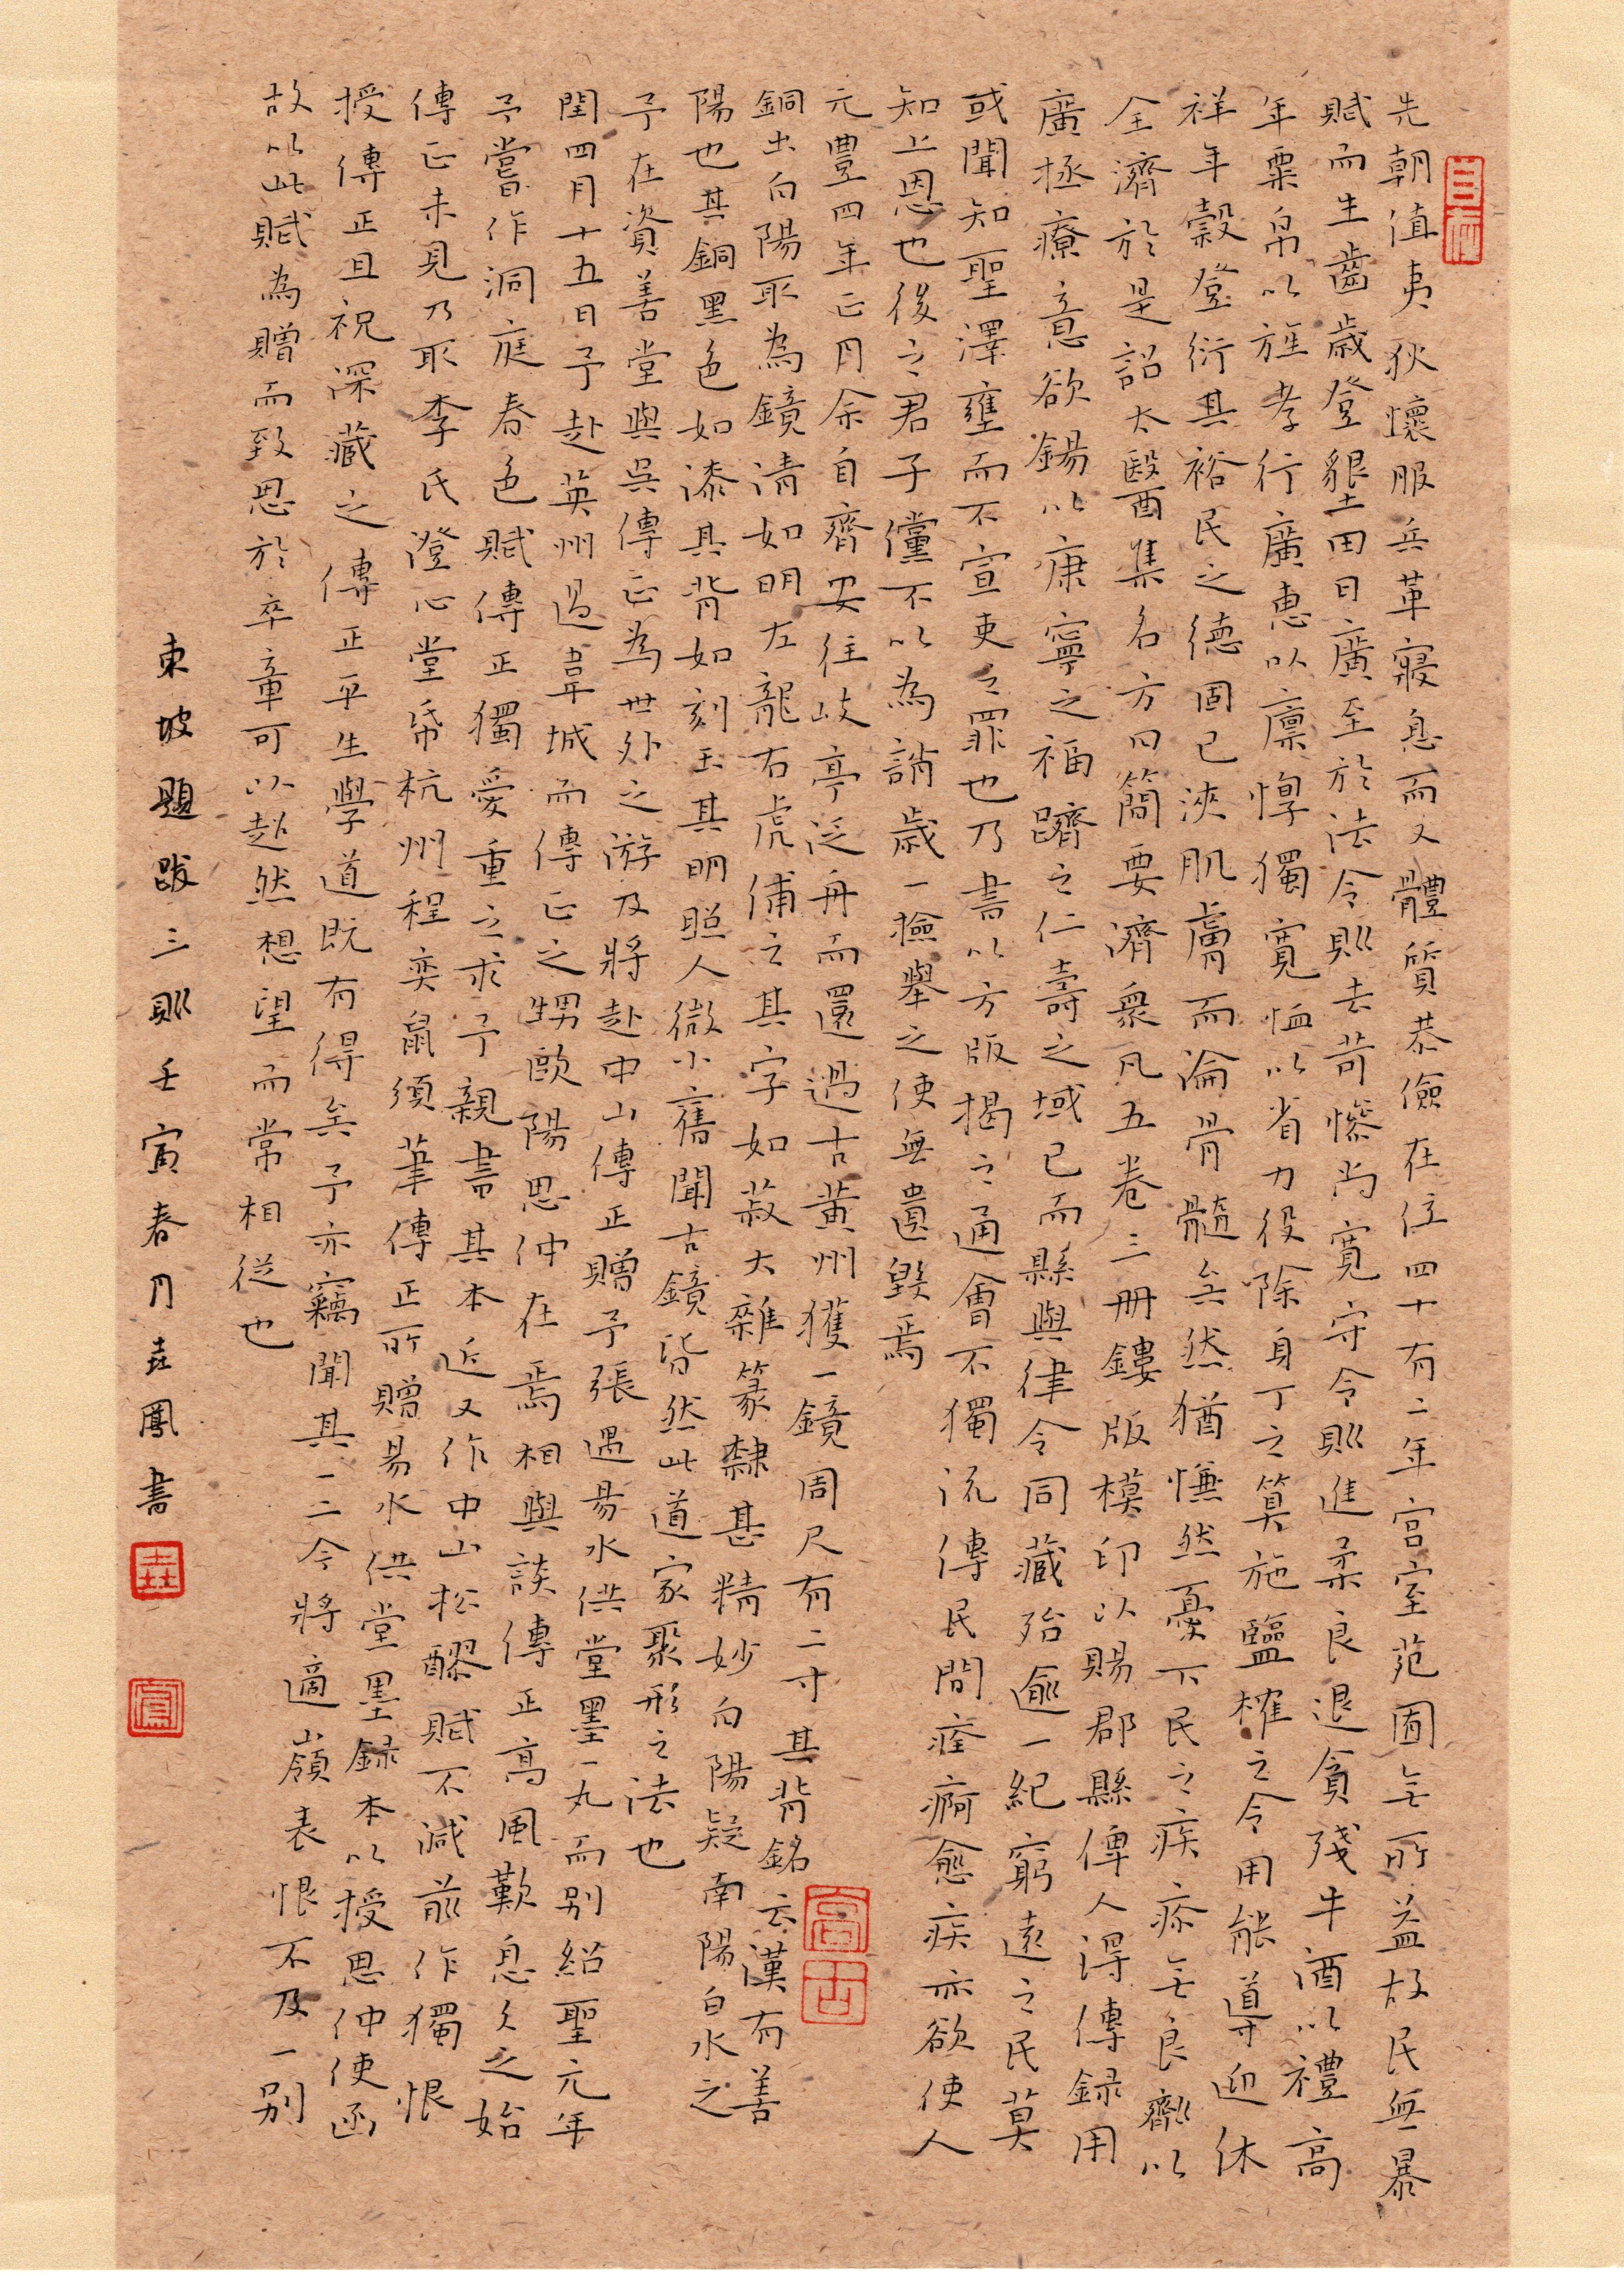 先朝值夷狄懷服兵革寢息而又體質恭儉在位四十有二年宮室苑囿無所益故民無暴
賦而生齒歲登墾田日廣至於法令則去苛慘尚寬守令則進柔良退貪殘牛酒以禮高
年粟帛以旌孝行廣惠以廩惸獨寬恤以省力役除身丁之算施鹽榷之令用能導迎休
祥年穀登衍其裕民之德固已浹肌膚而淪骨髓矣然猶慊然憂下民之疾疹無良劑以
全濟於是詔太醫集名方曰簡要濟衆凡五卷三冊鏤版模印以賜郡縣俾人得傳錄用
廣拯療意欲錫以康寧之福躋之仁壽之域已而縣與律令同藏殆逾一紀窮遠之民莫
或聞知聖澤壅而不宣吏之罪也乃書以方版揭之通會不獨流傳民間痊痾愈疾亦欲使人
知上恩也後之君子儻不以為誚歲一檢舉之使無遺毀焉
元豐四年正月余自齊安往岐亭泛舟而還過古黃州獲一鏡周尺有二寸其背銘云漢有善
銅出白陽取為鏡清如明左龍右虎俌之其字如菽大雜篆隸甚精妙白陽疑南陽白水之
陽也其銅黑色如漆其背如刻玉其明照人微小舊聞古鏡皆然此道家聚形之法也
予在資善堂與吳傳正為世外之游及將赴中山傳正贈予張遇易水供堂墨一丸而別紹聖元年
閏四月十五日予赴英州過韋城而傳正之甥歐陽思仲在焉相與談傳正高風歎息久之始
予嘗作洞庭春色賦傳正獨愛重之求予親書其本近又作中山松醪賦不減前作獨恨
傳正未見乃取李氏澄心堂紙杭州程奕鼠須筆傳正所贈易水供堂墨錄本以授思仲使面
授傳正且祝深藏之傳正平生學道既有得矣予亦竊聞其一二今將適嶺表恨不及一別
故以此賦為贈而致思於卒章可以超然想望而常相從也
東坡題跋三則壬寅春月垚鳳書
垚
鳳